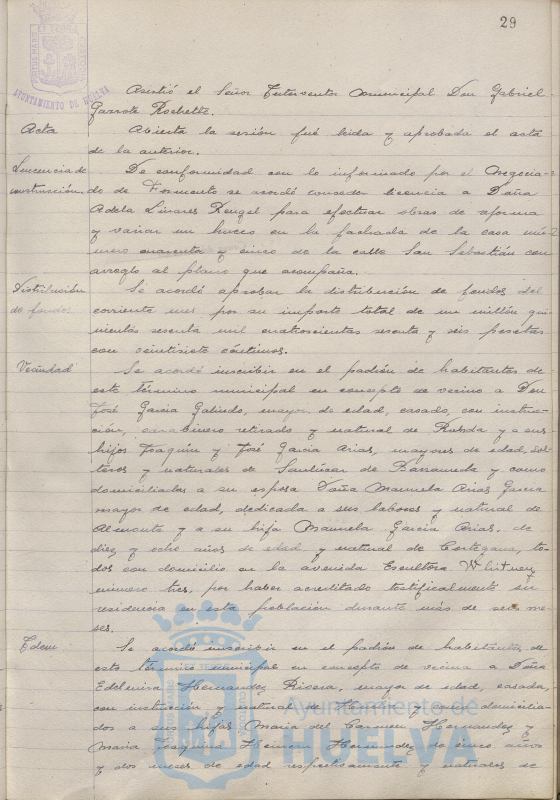 29
AYUNTAMIENTO DE HUELVA
Asistió el Señor Interventor municipal Don Gabriel
Garrote Rochette.
Acta
Abierta la sesión fué leida y aprobada el acta
de la anterior.
Lincencia de
construcción.
De conformidad con lo informado por el Negocia-
do de Formento se acordó conceder licencia a Doña
Adela Linares Rengel para efectuar obras de reforma
y variar un hueco en la fachada de la casa nú-
mero cuarenta y cinco de la calle San Sebastián con
arreglo al plano que acompaña.
Distribución
de fondos.
Se acordó aprobar la distribución de fondos del
corriente mes por su importe total de un millón qui-
nientas sesenta mil cuatroscientas sesenta y seis pesetas
con veintisiete céntimos.
Vecindad
Se acordó inscribir en el padrón de habitantes de
este término municipal en concepto de vecino a Don
José Garcia Galindo, mayor de edad, casado, con instruc-
ción, carabinero retirado y natural de Ronda y a sus
hijos Joaquín y José Garcia Arias, mayores de edad, sol-
teros y naturales de Sanlúcar de Barrameda y como
domiciliadas a su esposa Doña Manuela Arias Garcia
mayor de edad, dedicada a sus labores y natural de
Almonte y a su hija Manuela Garcia Arias, de
diez y ocho años de edad y natural de Cortegana, to-
dos con domicilio en la avenida Escultora Whitney
número tres, por haber acreditado testificalmente su
residencia en esta población durante más de seis me-
ses.
Idem
Se acordó inscribir en el padrón de habitantes de
este término municipal en concepto de vecina a Doña
Edelmira Hernandez mayor de edad, casada,
con instrucción y natural de y como domicilia-
das a sus hijas Maria del Carmen Hernandez y
Maria Joaquina Hernandez de cinco años
y dos meses de edad respectivamente y naturales de
Ayuntamiento de
HUELVA